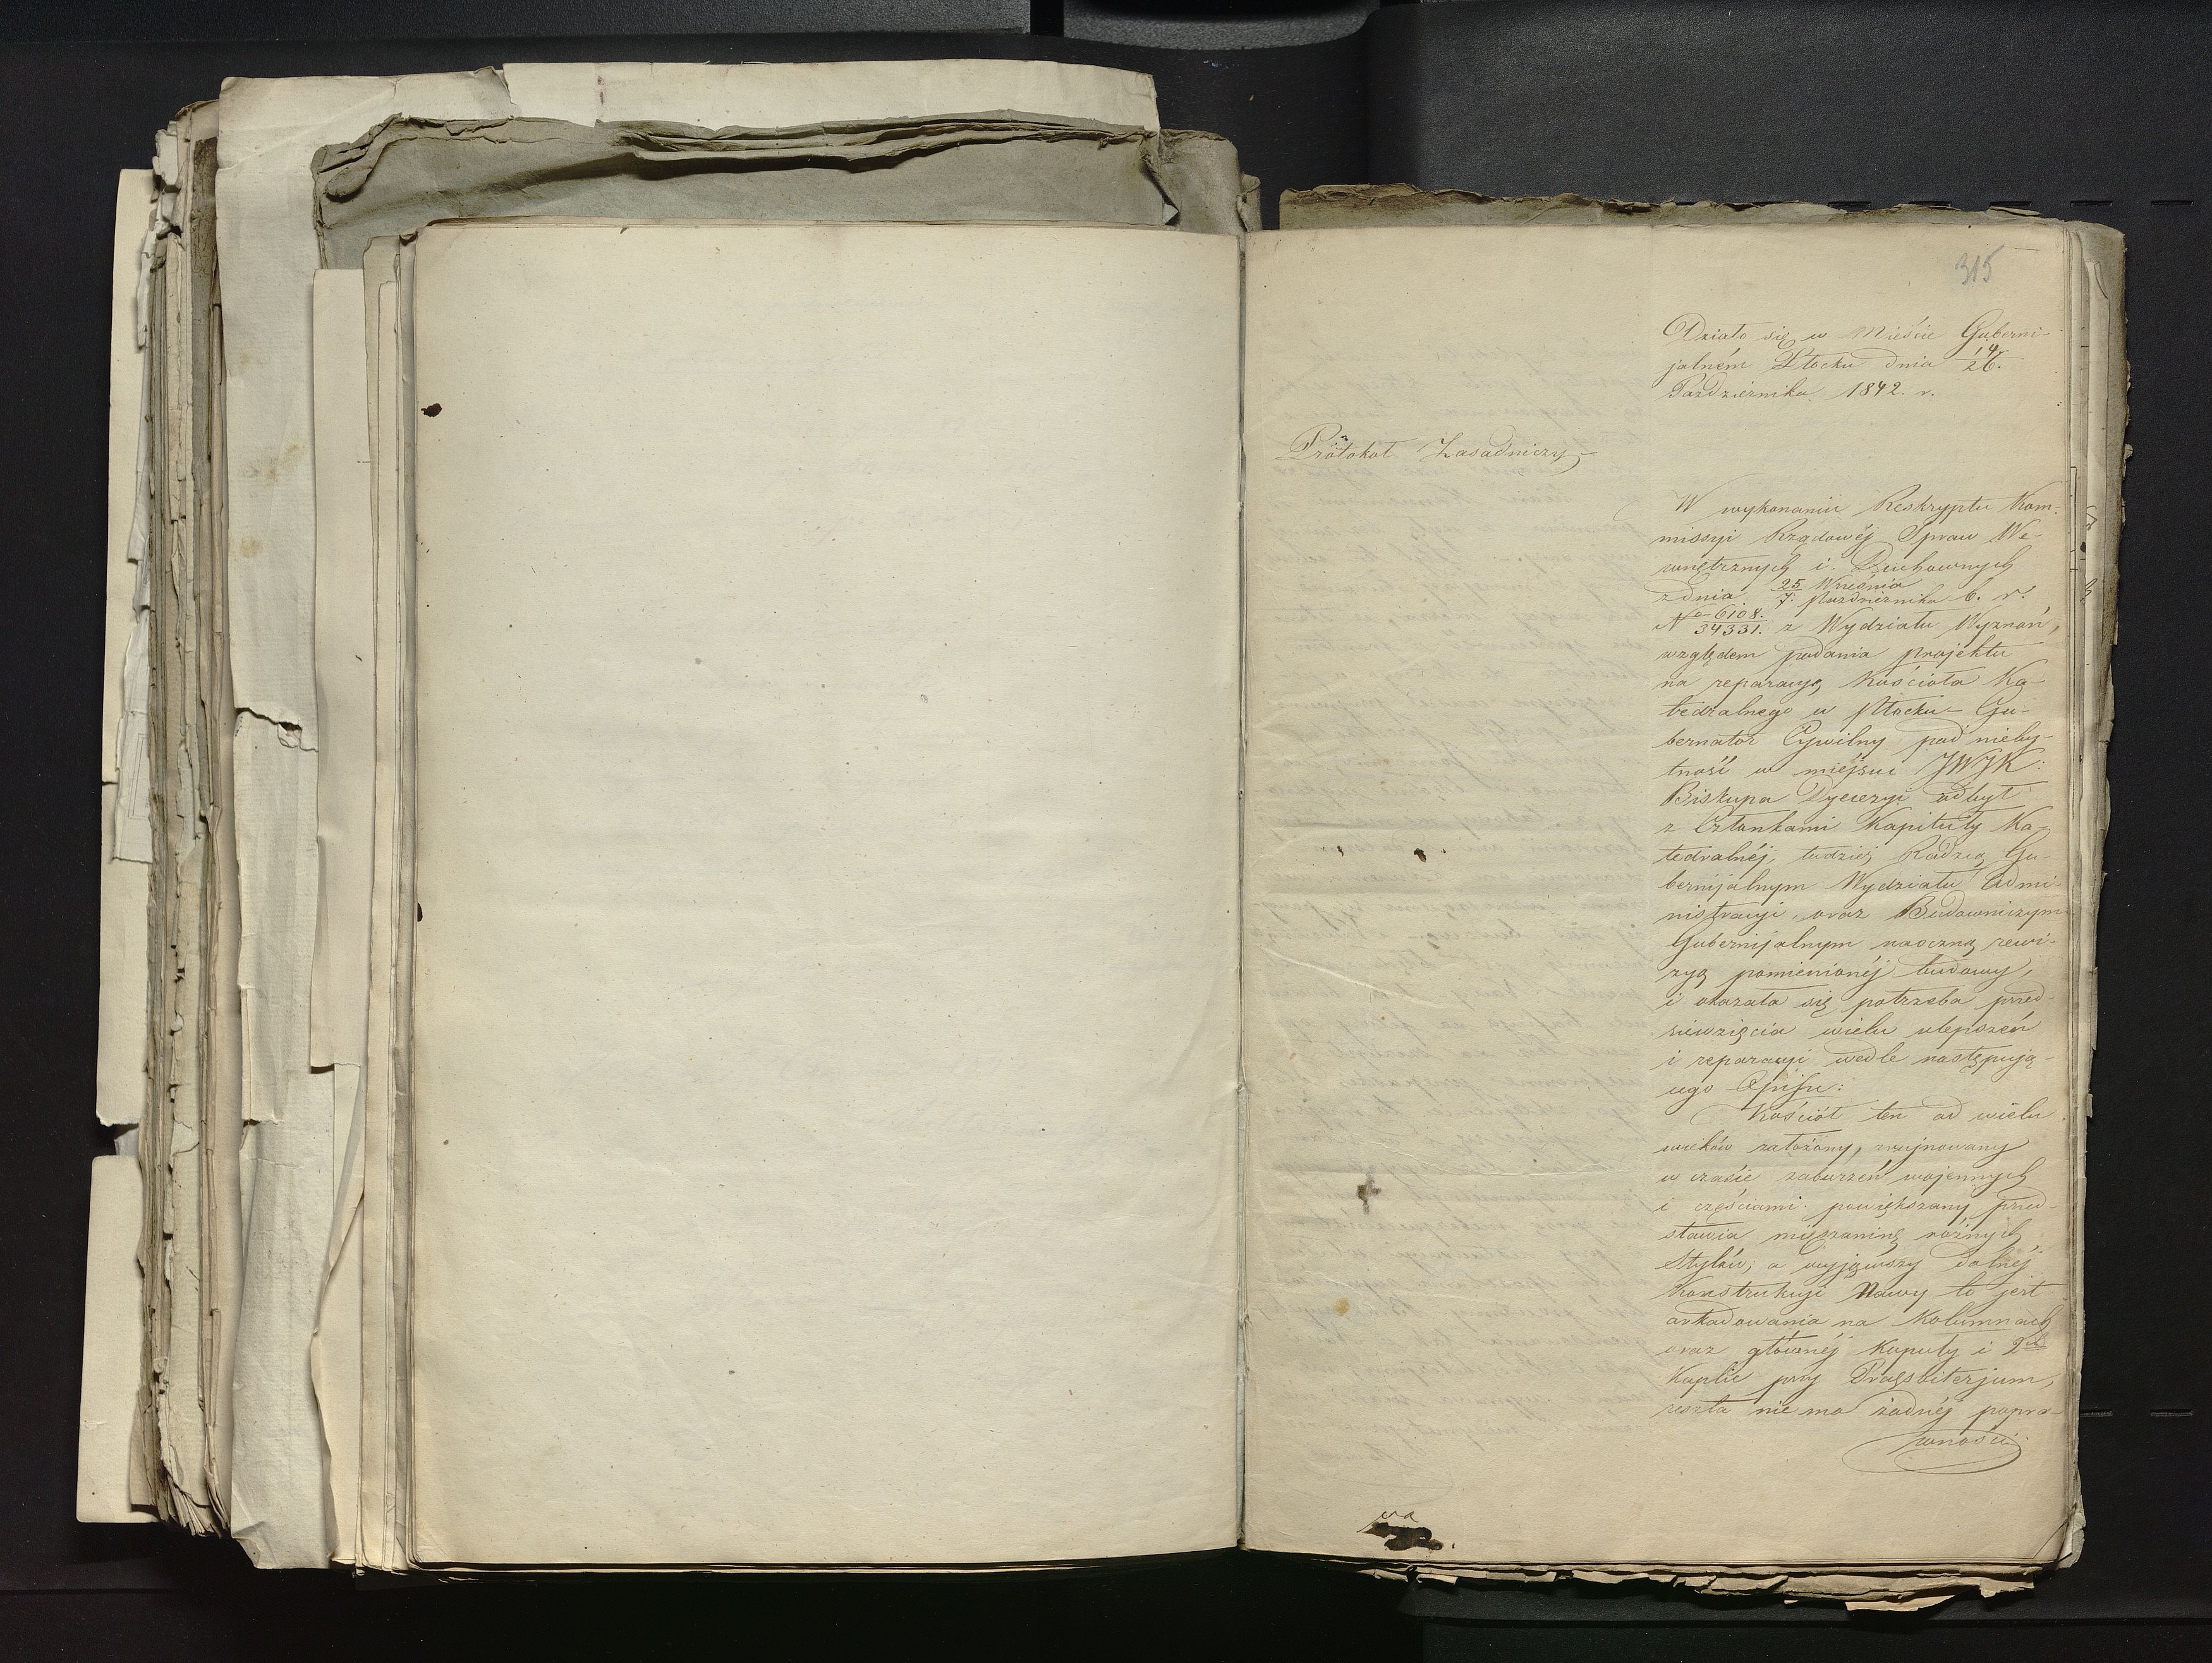 315
Działo się w Mieście Guberni-
jalném Płocku dnia 14/26.
Października 1842. r.
Protokół Zasadniczy
W wykonaniu Reskryptu Kom-
missyi Rządowéj Spraw We-
wnętrznych i Duchownych
z dnia 25 Września/7. Października b. r.
No 6108./34331. z Wydziału Wyznań,
względem podania projektu
na reparacyę Kościoła Ka-
tedralnego w Płocku – Gu-
bernator Cywilny pod nieby-
tność w miéjscu JWJK:
Biskupa Dyecezyi odbył
z Członkami Kapituły Ka-
tedralnéj, tudzież Radzcą Gu-
bernijalnym Wydziału Admi-
nistracyi, oraz Budowniczym
Gubernijalnym naoczną rewi-
zyą pomienionéj budowy,
i okazała się potrzeba przed-
sięwzięcia wielu ulepszeń
i reparacyi wedle następują-
cego Opisu:
Kościół ten od wielu
wieków założony, zrujnowany
w czasie zaburzeń wojennych
i częściami powiększany przed-
stawia mięszaninę różnych
Stylów; a wyjąwszy dolnéj
Konstrukcyi Nawy to jest
arkadowania na Kolumnach
oraz głównéj Kopuły i 2ch
Kaplic przy Praesbiterjum,
reszta nie ma żadnéj popra-
wności